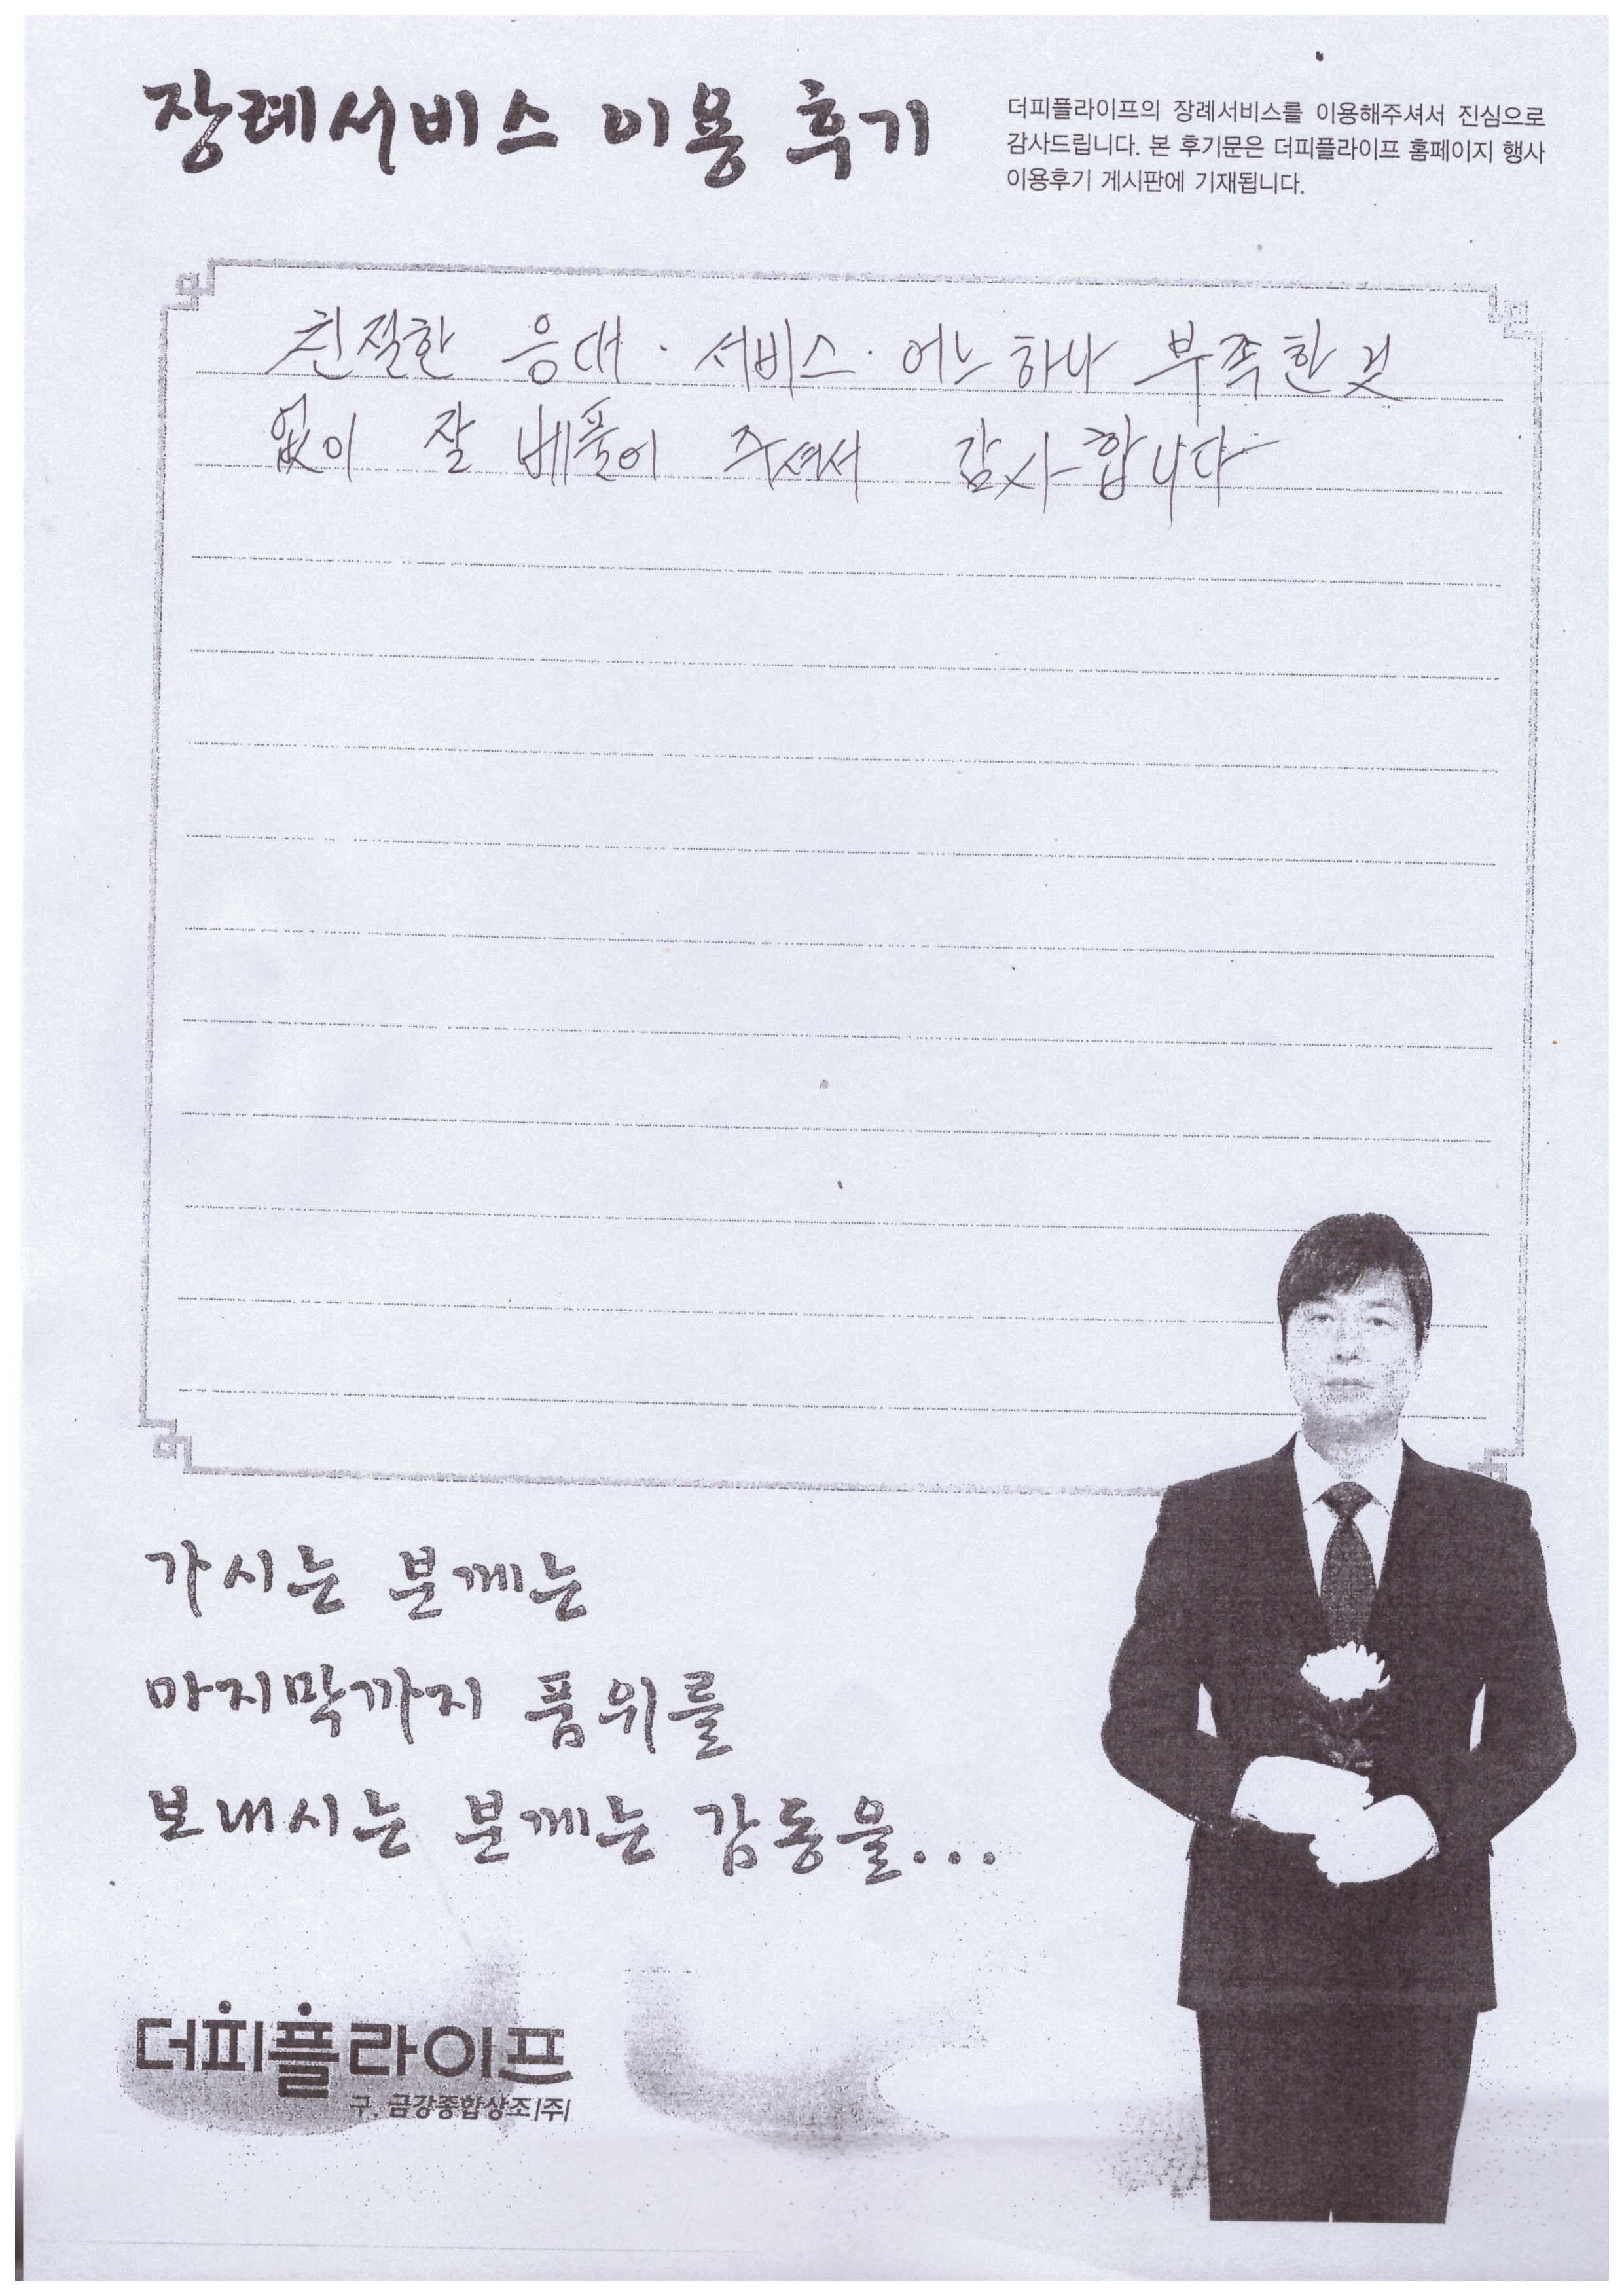 장례서비스 이용 후기
더피플라이프의 장례서비스를 이용해주셔서 진심으로
감사드립니다. 본 후기문은 더피플라이프 홈페이지 행사
이용후기 게시판에 기재됩니다.
친절한 응대 · 서비스 · 어느하나 부족한것
없이 잘 베풀어 주셔서 감사합니다
가시는 분께는
마지막까지 품위를
보내시는 분께는 감동을...
더피플라이프
구. 금강종합상조|주|